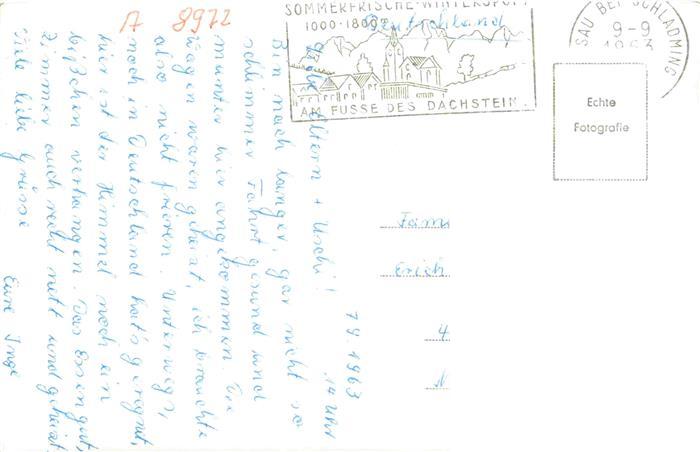 A 8972
SOMMERFRISCHE-WINTERSPORT
1000-1800m
Deutschland
AM FUSSE DES DACHSTEIN
SAU BEI SCHLADMING
9-9
1963
Echte
Fotografie
7.9.1963
14 Uhr
Eltern + Uschi!
Bin nach langer, gar nicht so
schlimmer Fahrt gesund und
munter hier angekommen. Die
Wagen waren geheizt, ich brauchte
also nicht frieren. Unterwegs,
noch in Deutschland hat's geregnet,
hier ist der Himmel noch ein
bißchen verhangen. Das Essen gut,
Zimmer auch recht nett und geheizt.
Viele liebe Grüsse
Eure Inge
Fami
Erich
4